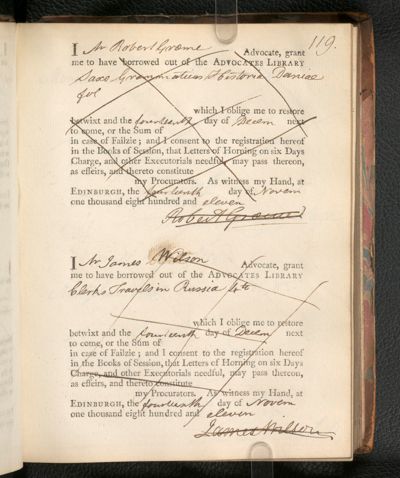 119.
I Mr Robert Græme Advocate, grant
me to have borrowed out of the ADVOCATES LIBRARY
Saxo Grammaticus Historia Daniae
fol
which I oblige me to restore
betwixt and the fourteenth day of Decem next
to come, or the Sum of
in case of Failzie; and I consent to the registration hereof
in the Books of Session, that Letters of Horning on six Days
Charge, and other Executorials needful, may pass thereon,
as effeirs, and thereto constitute
my Procurators. As witness my Hand, at
EDINBURGH, the fourteenth day of Novem
one thousand eight hundred and eleven
Robert Græme
I Mr James Wilson Advocate, grant
me to have borrowed out of the ADVOCATES LIBRARY
Clerks Travels in Russia 4to
which I oblige me to restore
betwixt and the fourteenth day of Decem next
to come, or the Sum of
in case of Failzie; and I consent to the registration hereof
in the Books of Session, that Letters of Horning on six Days
Charge, and other Executorials needful, may pass thereon,
as effeirs, and thereto constitute
my Procurators. As witness my Hand, at
EDINBURGH, the fourteenth day of Novem
one thousand eight hundred and eleven
James Wilson